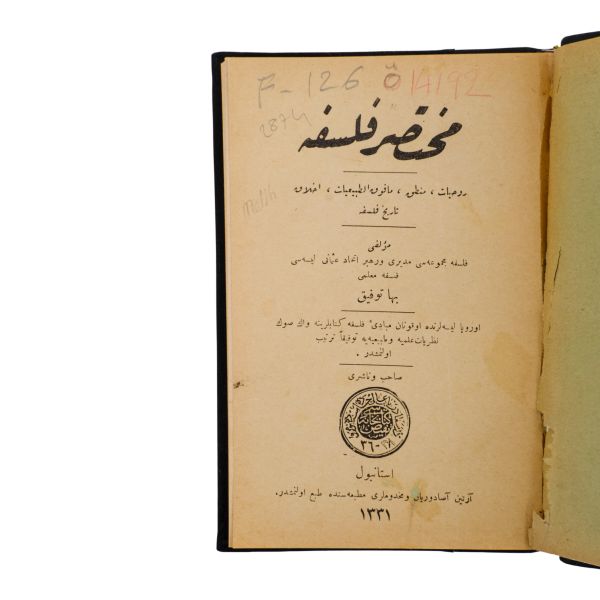 F - 126 Ö 14192
2874
مختصر فلسفه
روحیات ، منطق ، مافوق الطبیعیات ، اخلاق
تاریخ فلسفه
مؤلفی
فلسفه مجموعه‌سی مدیری ورهبر اتحاد عثمانی لیسه‌سی
فلسفه معلمی
بها توفیق
اوروپا لیسه‌لرنده اوقونان مبادیٔ فلسفه کتابلرینه واك صوك
نظریات علمیه و مابیعیه‌یه توفیقاً ترتیب
اولنمشدر .
صاحب وناشری
استانبول
آرتین آصادوریان ومخدوملری مطبعه‌سنده طبع اولنمشدر.
۱۳۳۱